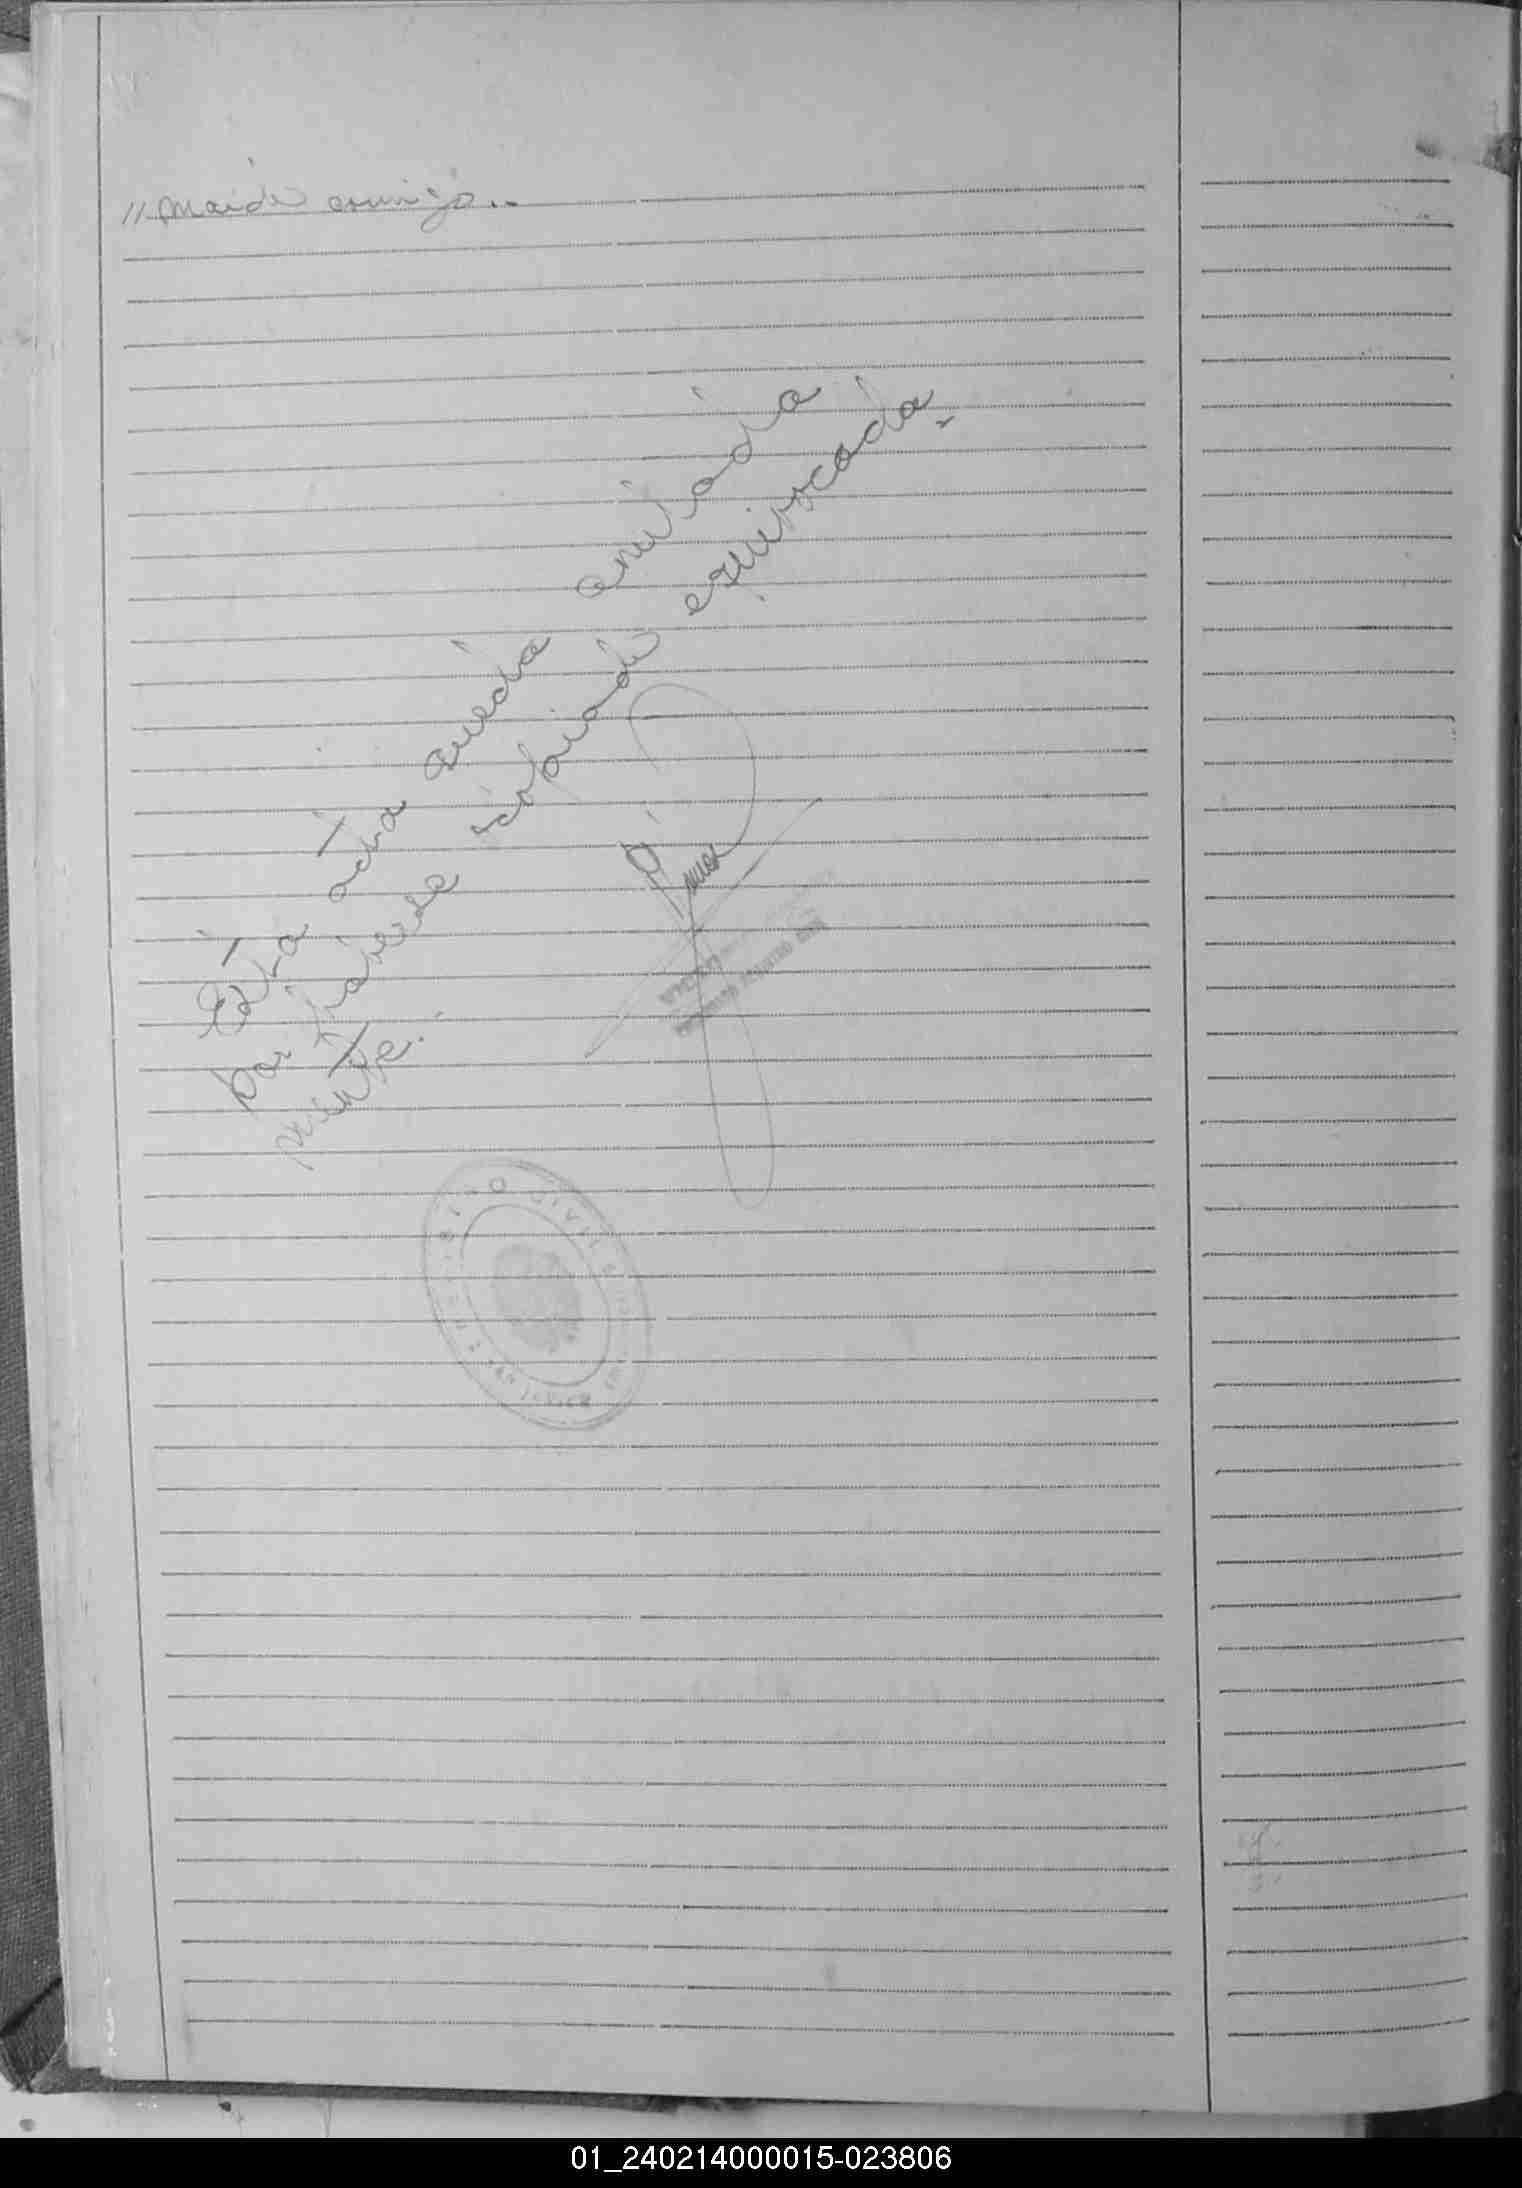 // maido conmigo..
Esta acta queda anulada
por haberse copiado equivocada-
mente.
REGISTRO CIVIL
01_240214000015-023806